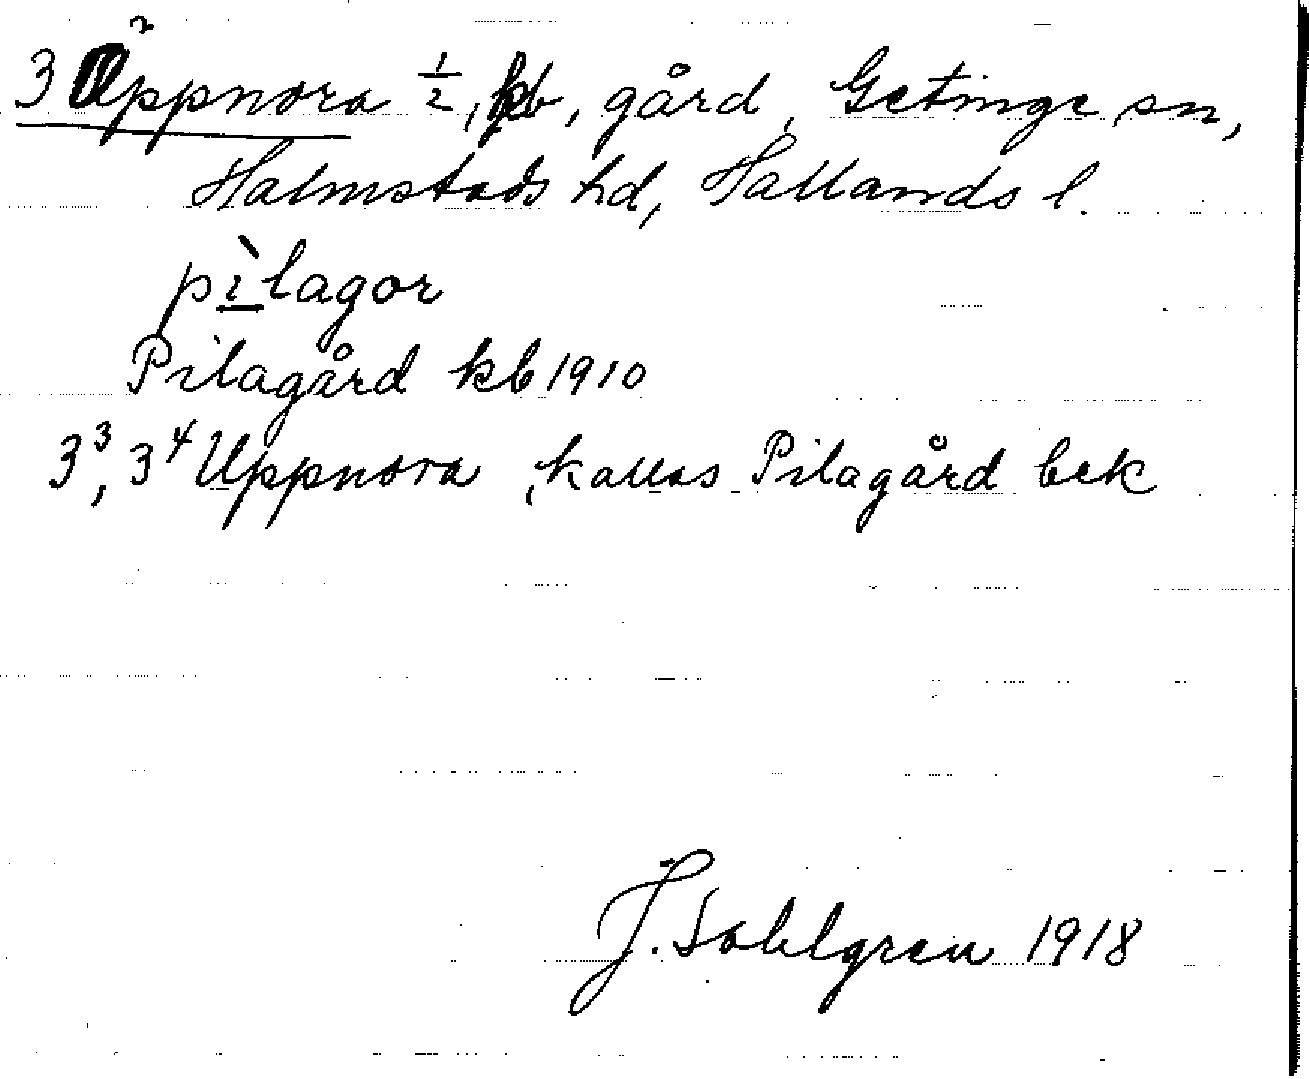 3² Uppnora ½, kb, gård, Getinge sn,
Halmstads hd, Hallands l.
pìlagor
Pilagård kb 1910
3³, 3⁴ Uppnora, kallas Pilagård bek
J. Sahlgren 1918